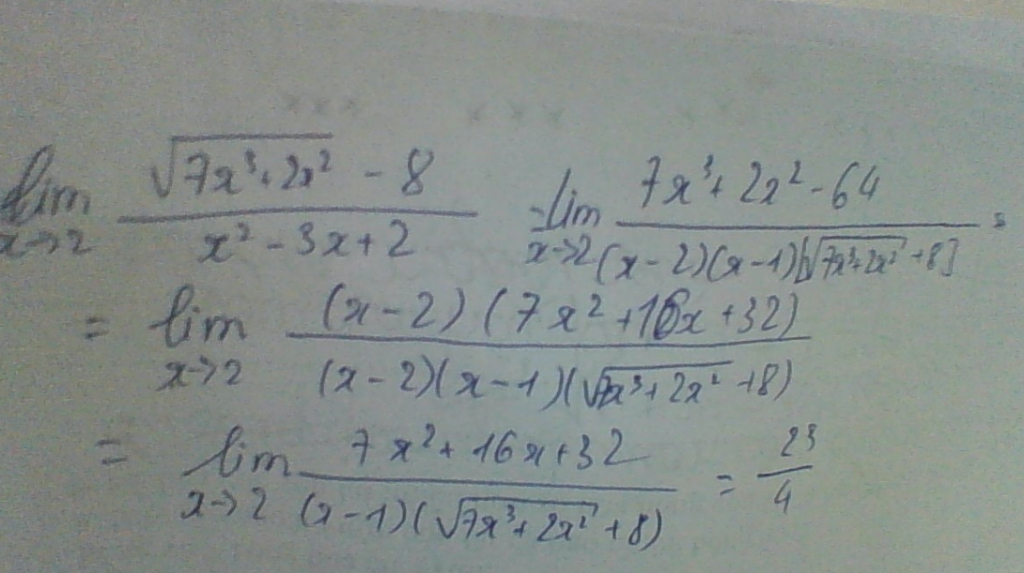 lim x→2 (√(7x³+2x²) - 8)/(x² - 3x + 2) = lim x→2 (7x³ + 2x² - 64)/((x-2)(x-1)[√(7x³+2x²) + 8]) =
= lim x→2 ((x-2)(7x² + 16x + 32))/((x-2)(x-1)(√(7x³+2x²) + 8))
= lim x→2 (7x² + 16x + 32)/((x-1)(√(7x³+2x²) + 8)) = 23/4